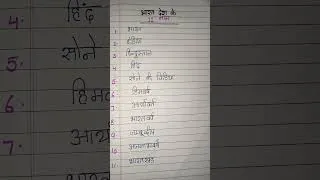 भारत देश के
11 नाम
1. भारत
2. इंडिया
3. हिन्दुस्तान
4. हिंद
5. सोने की चिड़िया
6. हिमवर्ष
7. आर्यावर्त
8. भारतवर्ष
9. जम्बूद्वीप
10. अजनाभवर्ष
11. भारतखंड
4. हिंद
5. सोने
6. हिमव
7. आर्या